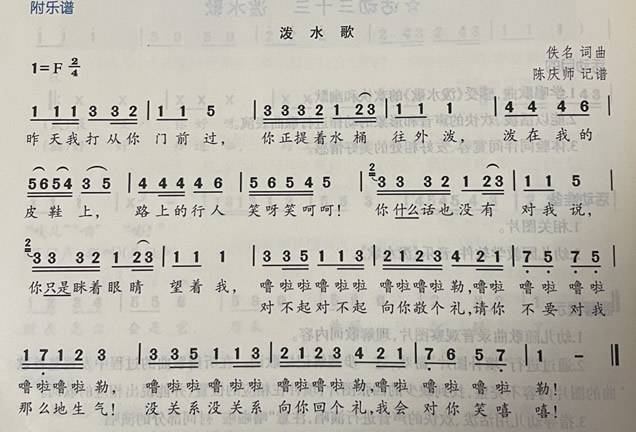 附乐谱
泼水歌
佚名 词曲
1=F 2/4
陈庆师 记谱
1 1 1 3 3 2 | 1 1 5 | 3 3 3 2 1 2 3 | 1 1 1 | 4 4 4 6 |
昨天我打从你 门前过, 你正提着水桶 往外泼, 泼在我的
5 6 5 4 3 5 | 4 4 4 4 6 | 5 6 5 4 5 | 2 3 3 3 2 1 2 3 | 1 1 5 |
皮鞋上, 路上的行人 笑呀笑呵呵! 你什么话也没有 对我说,
2 3 3 3 2 1 2 3 | 1 1 1 | 3 3 5 1 1 3 | 2 2 3 2 4 2 1 | 7 5 7 5 |
你只是眯着眼睛 望着我, 噜啦啦噜啦啦 噜啦噜啦勒,噜啦 噜啦噜啦
对不起对不起 向你敬个礼,请你 不要对我
1 7 1 2 3 | 3 3 5 1 1 3 | 2 2 3 2 4 2 1 | 7 6 5 7 | 1 - ‖
噜啦噜啦勒, 噜啦啦噜啦啦 噜啦噜啦勒,噜啦 噜啦噜啦 勒!
那么地生气! 没关系没关系 向你回个礼,我会 对你笑嘻 嘻!